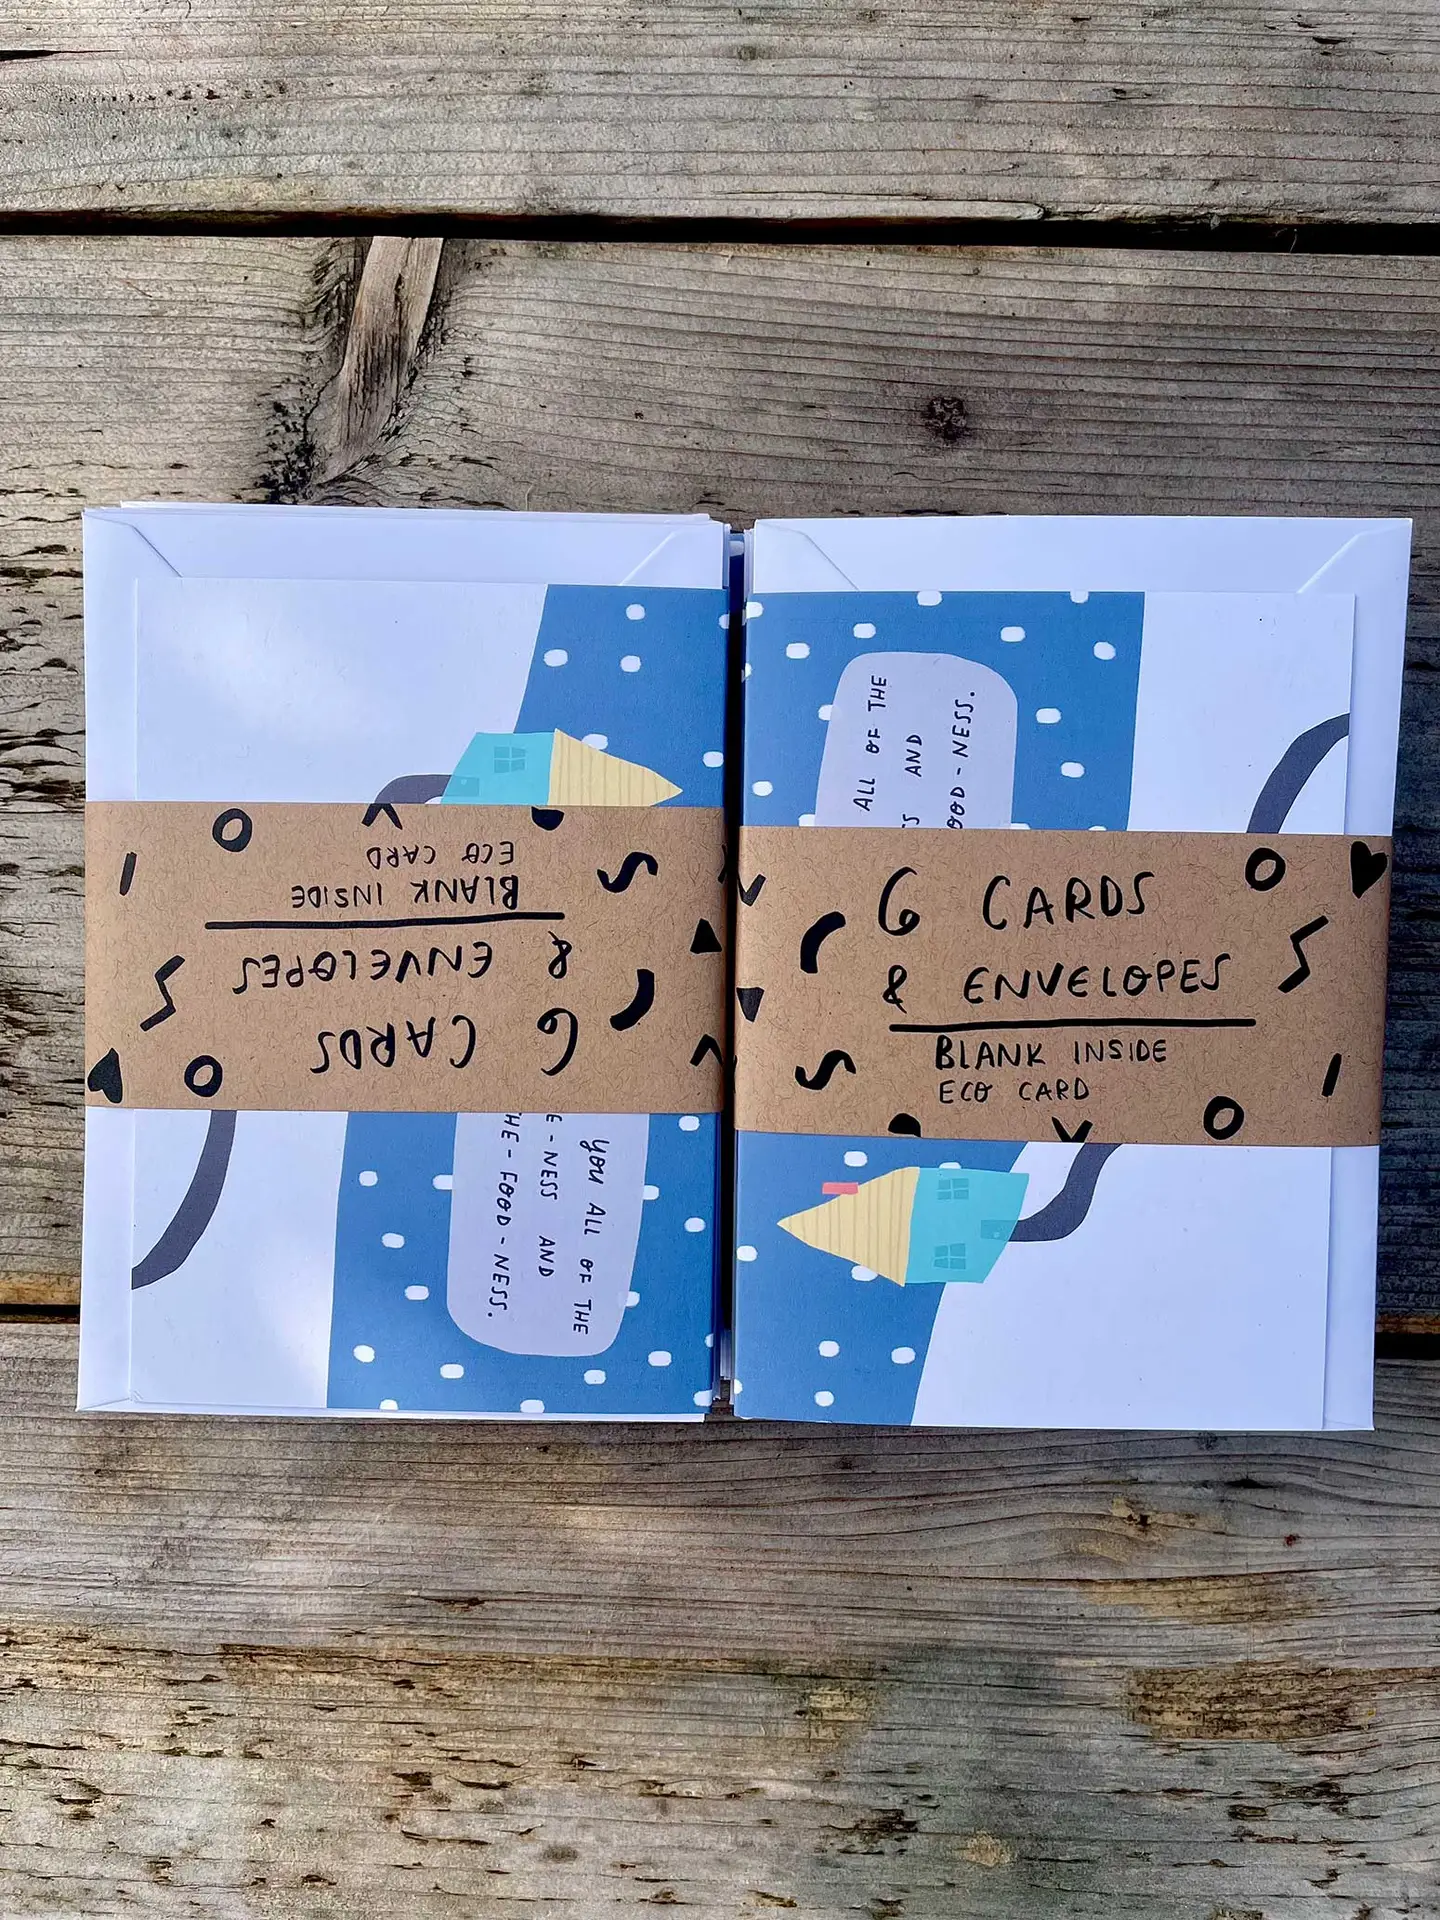 6 CARDS
& ENVELOPES
BLANK INSIDE
ECO CARD
YOU ALL OF THE
E-NESS AND
HE-FOOD-NESS.
6 CARDS
& ENVELOPES
BLANK INSIDE
ECO CARD
ALL OF THE
SS AND
OOD-NESS.